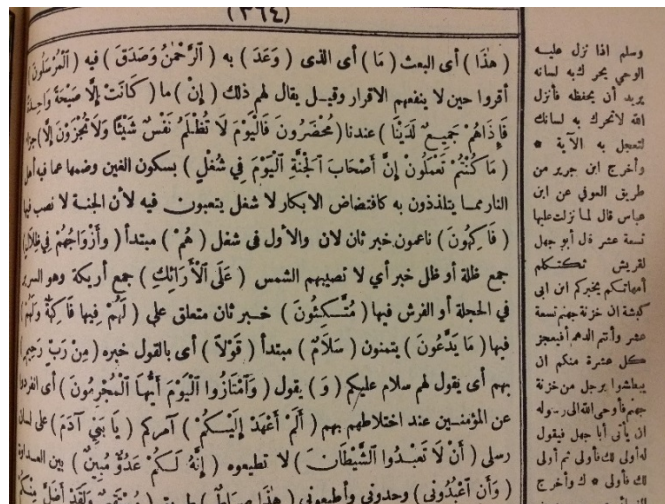 (٣٦٤)
(هٰذَا) أى البعث (مَا) أى الذى (وَعَدَ) به (ٱلرَّحْمٰنُ وَصَدَقَ) فيه (ٱلْمُرْسَلُونَ)
أقروا حين لا ينفعهم الاقرار وقيل يقال لهم ذلك (إِنْ) ما (كَانَتْ إِلَّا صَيْحَةً وَاحِدَةً
فَإِذَا هُمْ جَمِيعٌ لَدَيْنَا) عندنا (مُحْضَرُونَ فَالْيَوْمَ لَا تُظْلَمُ نَفْسٌ شَيْئًا وَلَا تُجْزَوْنَ إِلَّا) جزاء
(مَا كُنْتُمْ تَعْمَلُونَ إِنَّ أَصْحَابَ ٱلْجَنَّةِ ٱلْيَوْمَ فِي شُغْلٍ) بسكون الغين وضمها عما فيه أهل
النار مما يتلذذون به كافتضاض الابكار لا شغل يتعبون فيه لأن الجنة لا نصب فيها
(فَاكِهُونَ) ناعمون خبر ثان لان والأول فى شغل (هُمْ) مبتدأ (وَأَزْوَاجُهُمْ فِي ظِلَالٍ)
جمع ظلة أو ظل خبر أي لا تصيبهم الشمس (عَلَى ٱلْأَرَائِكِ) جمع أريكة وهو السرير
في الحجلة أو الفرش فيها (مُتَّكِئُونَ) خبر ثان متعلق على (لَهُمْ فِيهَا فَاكِهَةٌ وَلَهُمْ)
فيها (مَا يَدَّعُونَ) يتمنون (سَلَامٌ) مبتدأ (قَوْلًا) أى بالقول خبره (مِنْ رَبٍّ رَحِيمٍ)
بهم أى يقول لهم سلام عليكم (وَ) يقول (وَٱمْتَازُوا ٱلْيَوْمَ أَيُّهَا ٱلْمُجْرِمُونَ) أى انفردوا
عن المؤمنين عند اختلاطهم بهم (أَلَمْ أَعْهَدْ إِلَيْكُمْ) آمركم (يَا بَنِي آدَمَ) على لسان
رسلى (أَنْ لَا تَعْبُدُوا ٱلشَّيْطَانَ) لا تطيعوه (إِنَّهُ لَكُمْ عَدُوٌّ مُبِينٌ) بين العداوة
(وَأَنِ ٱعْبُدُونِي) وحدونى وأطيعونى (هٰذَا صِرَاطٌ) طريق (مُسْتَقِيمٌ وَلَقَدْ أَضَلَّ مِنْكُمْ
وسلم اذا نزل عليه
الوحي يحرك به لسانه
يريد أن يحفظه فأنزل
الله لا تحرك به لسانك
لتعجل به الآية *
وأخرج ابن جرير من
طريق العوفي عن ابن
عباس قال لما نزلت عليها
تسعة عشر قال أبو جهل
لقريش ثكلتكم
أمهاتكم يخبركم ابن ابى
كبشة ان خزنة جهنم تسعة
عشر وأنتم الدهم أفيعجز
كل عشرة منكم ان
يبطشوا برجل من خزنة
جهنم فأوحى الله الى رسوله
ان يأتى أبا جهل فيقول
له أولى لك فأولى ثم أولى
لك فأولى * وأخرج